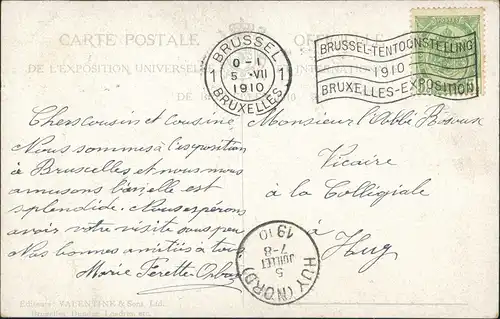 CARTE POSTALE OFFICIELLE
DE L'EXPOSITION UNIVERSELLE INTERNATIONALE
DE
BRUSSEL
1 0-1 1
5 VII
1910
BRUXELLES
BRUSSEL-TENTOONSTELLING
1910
BRUXELLES-EXPOSITION
Chers cousin et cousine
Nous sommes à l'exposition
à Bruxelles et nous nous
amusons bien elle est
splendide. Nous espérons
avoir votre visite sous peu
Nos bonnes amitiés à tous
Marie Ferette
Monsieur l'abbé
Vicaire
à la Collégiale
à
Huy
HUY (NORD)
5
JUILLET
7-8
1910
Editeurs: VALENTINE & Sons, Ltd.
Bruxelles, Dundee, Londres etc.